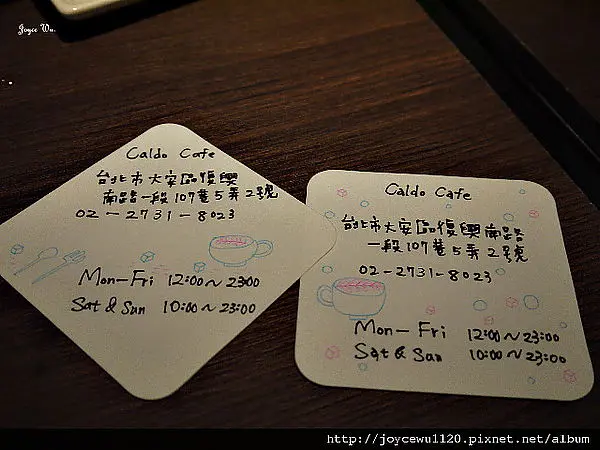 Joyce Wu.
Caldo Cafe
台北市大安區復興
南路一段107巷5弄2號
02-2731-8023
Mon-Fri 12:00~23:00
Sat & Sun 10:00~23:00
Caldo Cafe
台北市大安區復興南路
一段107巷5弄2號
02-2731-8023
Mon-Fri 12:00~23:00
Sat & Sun 10:00~23:00
http://joycewu1120.pixnet.net/album